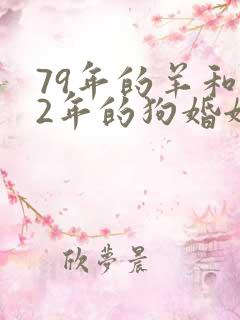 79年的羊和
2年的狗婚
欣夢晨